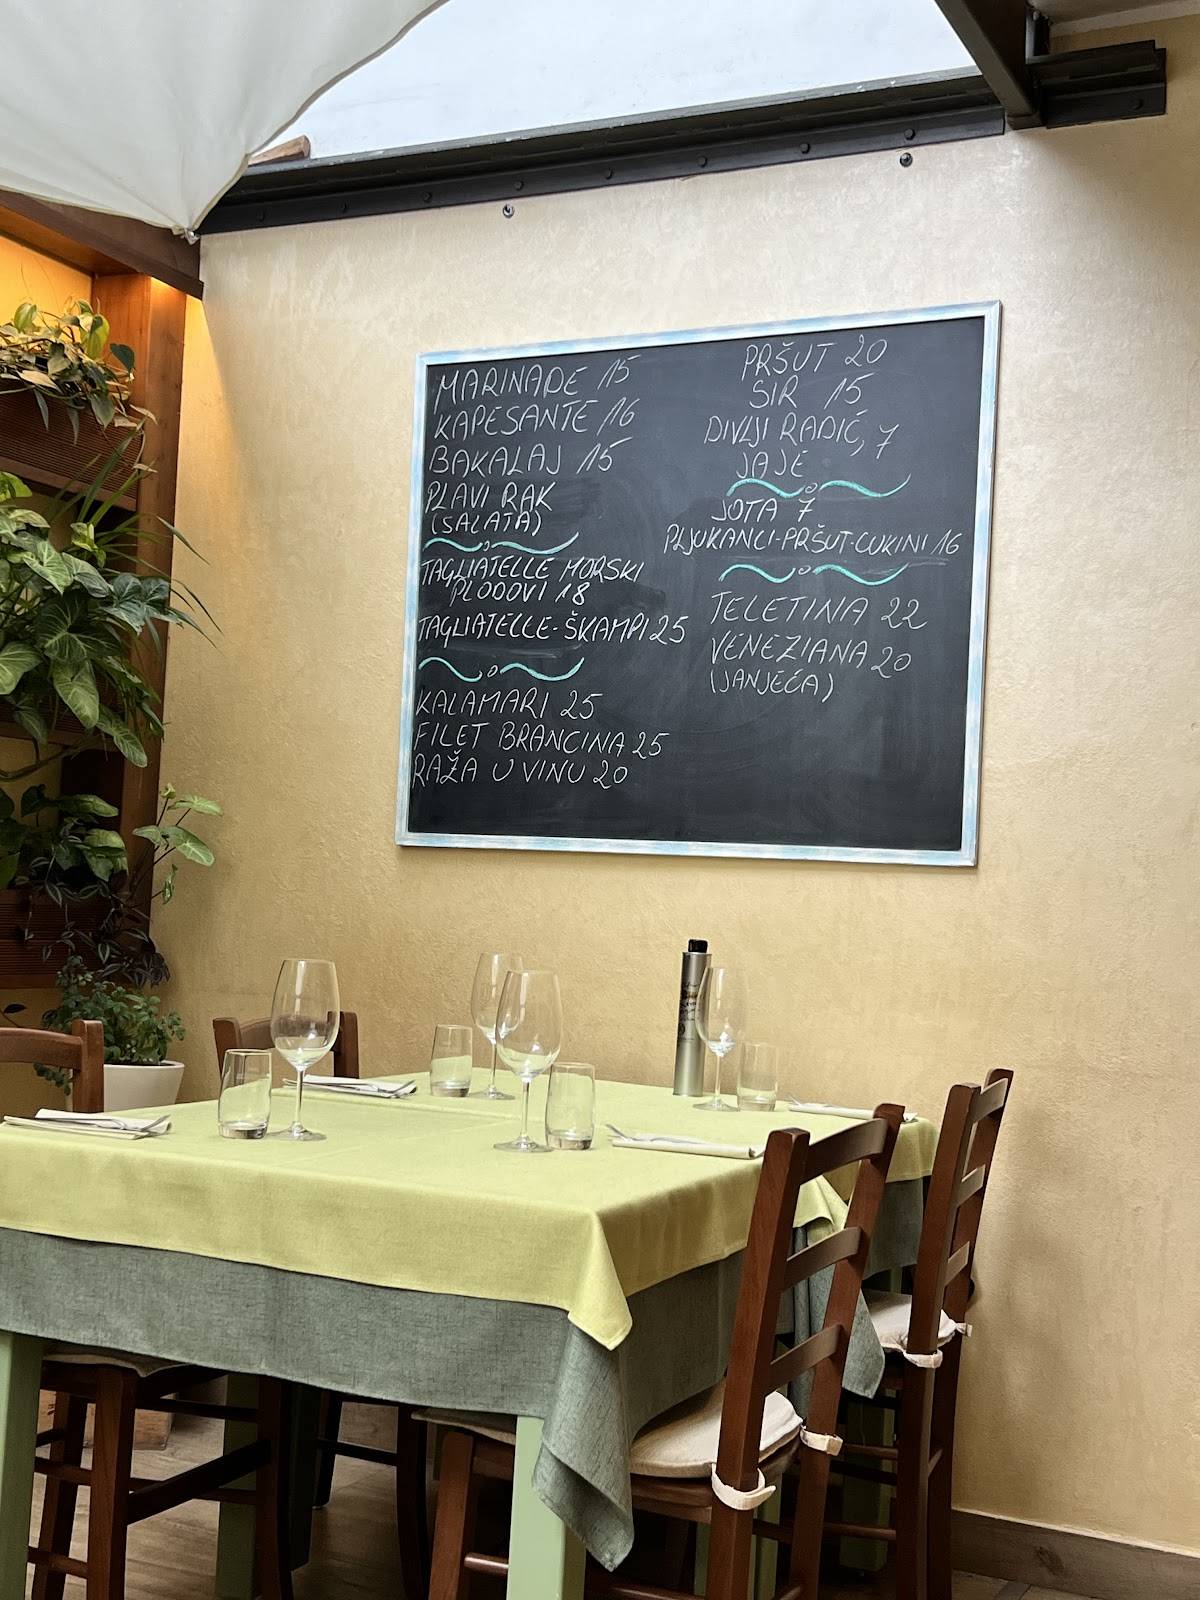 MARINADE 15
KAPESANTE 16
BAKALAJ 15
PLAVI RAK
(SALATA)
TAGLIATELLE MORSKI
PLODOVI 18
TAGLIATELLE-ŠKAMPI 25
KALAMARI 25
FILET BRANCINA 25
RAŽA U VINU 20
PRŠUT 20
SIR 15
DIVLJI RADIĆ, 7
JAJE
JOTA 7
PLJUKANCI-PRŠUT-CUKINI 16
TELETINA 22
VENEZIANA 20
(JANJEĆA)